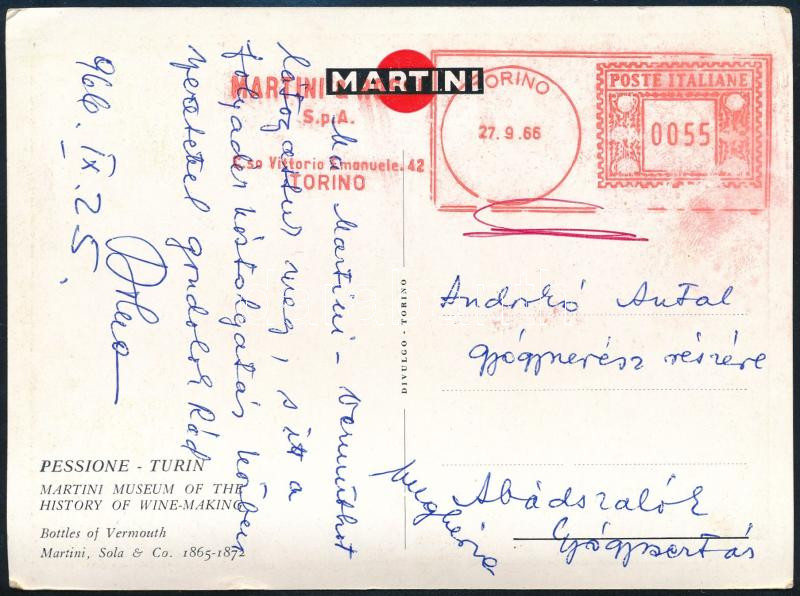 MARTINI
MARTINI
S.p.A.
C.so Vittorio Emanuele, 42
TORINO
TORINO
27.9.66
POSTE ITALIANE
0055
Ma Martini-Vermuthot
látogattuk meg, s itt a
folyadék kóstolgatás közben
szeretettel gondolok Rád
966. IX. 25.
DIVULGO - TORINO
Andorkó Antal
gyógyszerész részére
Abádszalók
Gyógyszertár
Ungheria
PESSIONE - TURIN
MARTINI MUSEUM OF THE
HISTORY OF WINE-MAKING
Bottles of Vermouth
Martini, Sola & Co. 1865-1872